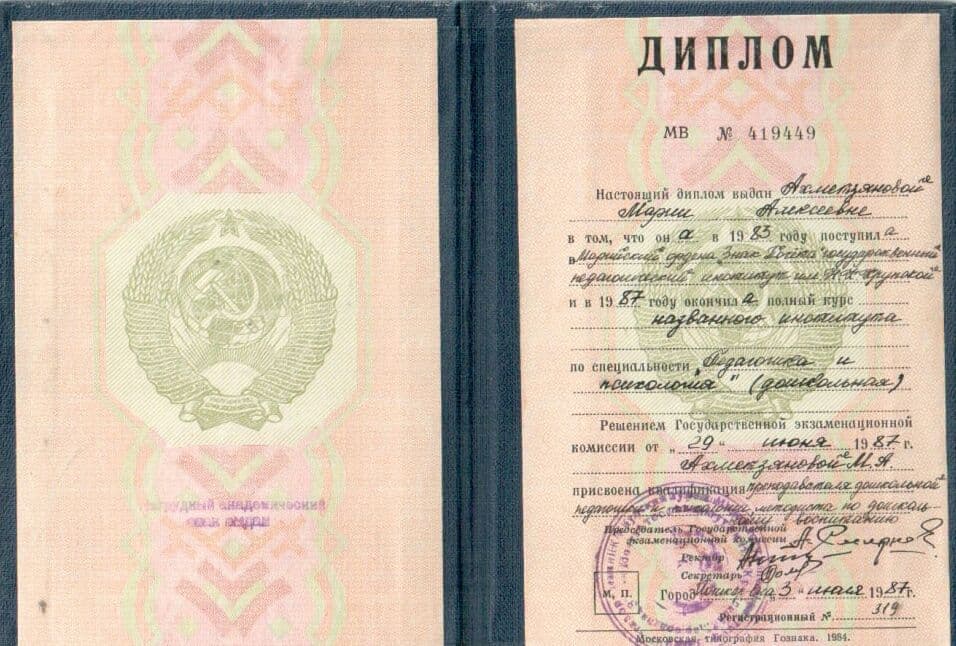 ДИПЛОМ
МВ № 419449
Настоящий диплом выдан Ахметзяновой
Марии Алексеевне
в том, что он а в 1983 году поступил а
в Марийский ордена "Знак Почёта" государственный
педагогический институт им. Н.К. Крупской
и в 1987 году окончил а полный курс
названного института
по специальности "Педагогика и
психология" (дошкольная)
Решением Государственной экзаменационной
комиссии от „29" июня 1987 г.
Ахметзяновой М. А.
присвоена квалификация преподавателя дошкольной
педагогики и психологии, методиста по дошколь-
ному воспитанию
Председатель Государственной
экзаменационной комиссии
Ректор
Секретарь
М. П. Город Йошкар-Ола „3" июля 1987 г.
Регистрационный № 319
Московская типография Гознака. 1984.